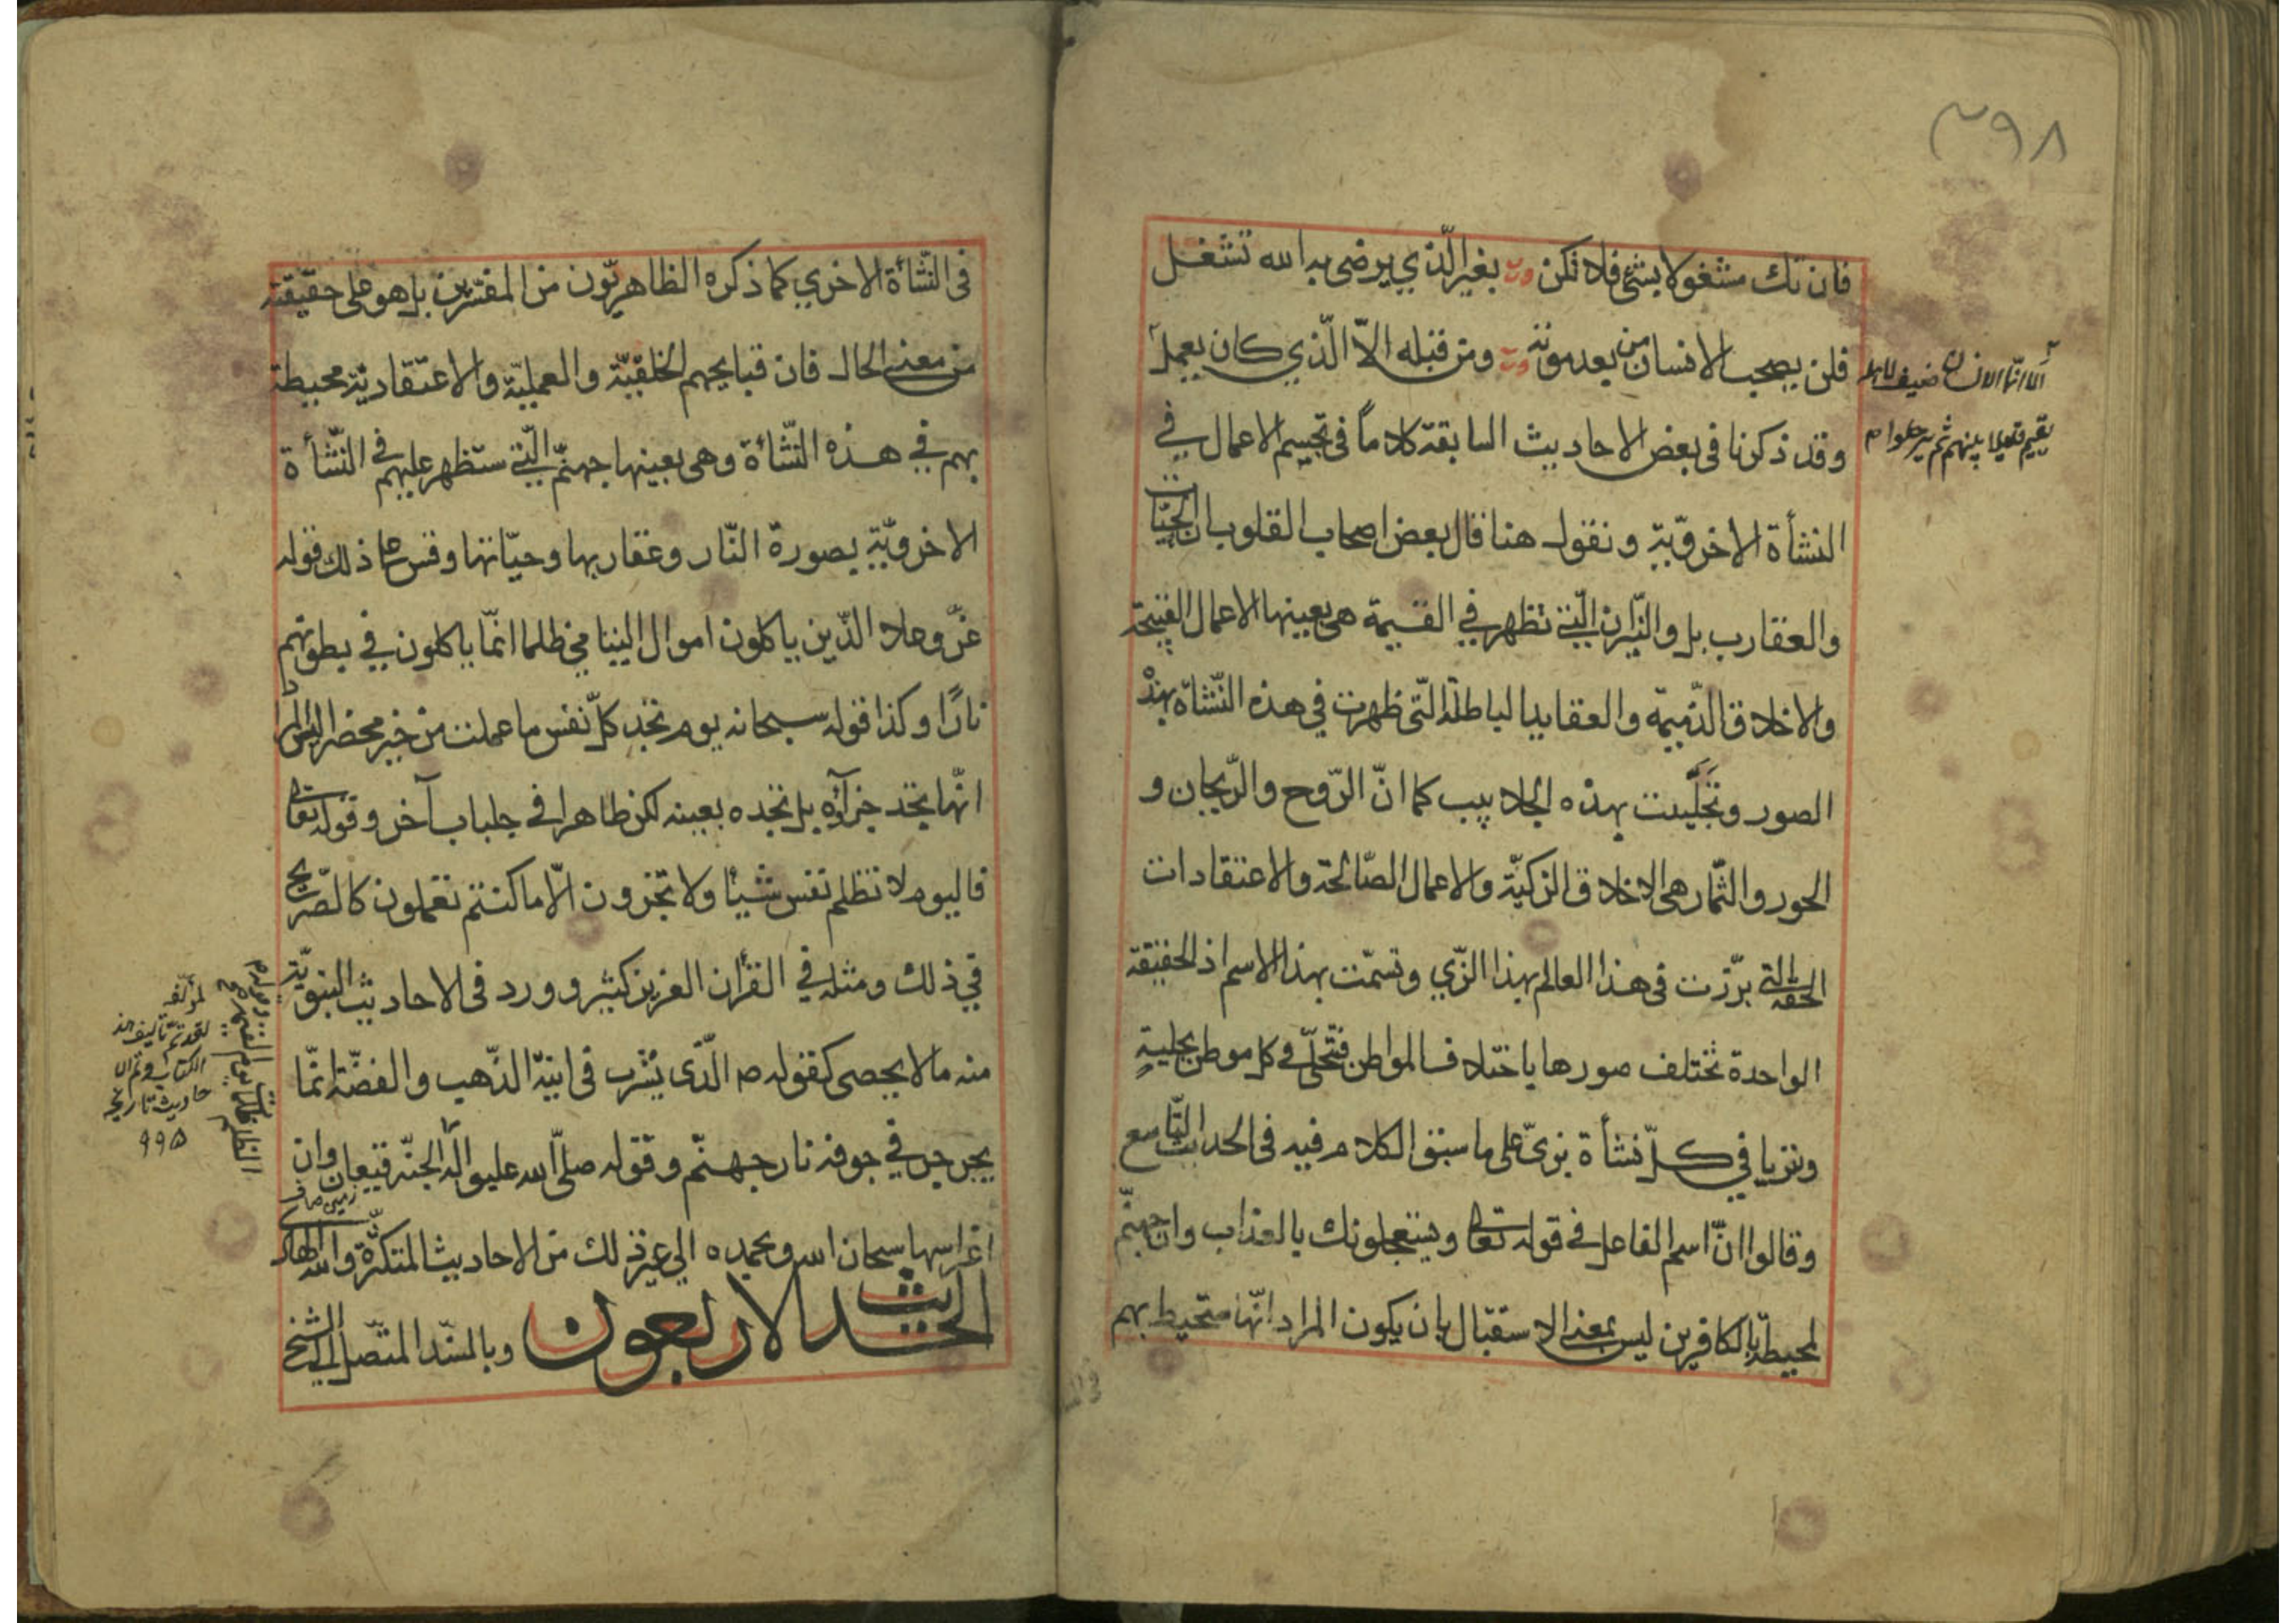 ٢٩٨
فان تك مشغولا بشئ فلا تكن وت بغير الّذي يرضى به الله تشغل
فلن يصحب الانسان من بعد موته وت ومن قبله الاّ الّذي كان يعمل
الا انّما الانسان ضيف لاهله
يقيم قليلا بينهم ثم يرحلوا م
وقد ذكرنا فى بعض الاحاديث السابقة كلاماً فى تجسيم الاعمال في
النشأة الاخرويّة ونقول هنا قال بعض اصحاب القلوب ان الحيّات
والعقارب بل والنّيران الّتي تظهر في القيمة هى بعينها الاعمال القبيحة
والاخلاق الذّميمة والعقايد الباطلة الّتى ظهرت في هذه النّشأة بهذه
الصور وتجلّببت بهذه الجلابيب كما انّ الرّوح والرّيحان و
الحور والثّمار هى الاخلاق الزكيّة والاعمال الصّالحة والاعتقادات
الحقّة الّتي برّزت فى هذا العالم بهذا الزّي وتسمّت بهذا الاسم اذ الحقيقة
الواحدة تختلف صورها باختلاف المواطن فتحلّى في كل موطن بحلية
وتزيا في كلّ نشأة بزىّ على ما سبق الكلام فيه فى الحديث التّاسع
وقالوا انّ اسم الفاعل في قوله تعالى ويستعجلونك بالعذاب وان جهنّم
لمحيطة بالكافرين ليس بمعنى الاستقبال بان يكون المراد انّها ستحيط بهم
فى النّشأة الاخرى كما ذكره الظاهريّون من المفسّرين بل هو على حقيقته
من معنى الحال فان قبايحهم الخلقيّة والعمليّة والاعتقاديّة محيطة
بهم في هذه النّشأة وهى بعينها جهنّم الّتي ستظهر عليهم في النّشأة
الاخرويّة بصورة النّار وعقاربها وحيّاتها وقس على ذلك قوله
عزّ وعلا الّذين ياكلون اموال اليتامى ظلما انّما ياكلون في بطونهم
نارًا وكذا قوله سبحانه يوم تجد كلّ نفس ما عملت من خير محضرا ليس المراد
انّها تجد جزآؤه بل تجده بعينه لكن ظاهرا في جلباب آخر وقوله تعالى
فاليوم لا تظلم نفس شيئًا ولا تجزون الّا ما كنتم تعملون كالصّريح
في ذلك ومثله في القرأن العزيز كثير وورد فى الاحاديث النبويّة
منه ما لا يحصى كقوله ص الّذى يشرب فى انية الذّهب والفضّة انّما
يجرجر في جوفه نار جهنّم وقوله صلّى الله عليه واله الجنّة قيعان وان
زمين صاف
غراسها سبحان الله وبحمده الي غير ذلك من الاحاديث المتكثّرة والله الهادى
الحديث الاربعون وبالسّند المتّصل الى الشيخ
لمؤلّفه
لقد تمّ تاليف هذ
الكتاب وتم ال
حاديث تاريخه
٩٩٥